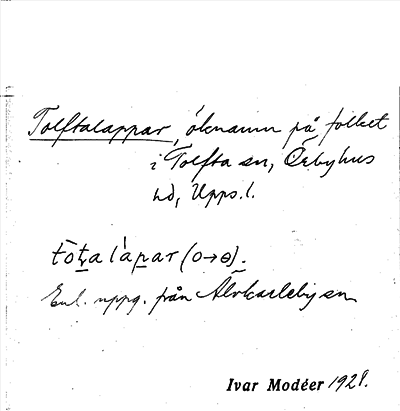 Tolftalappar, öknamn på folket
i Tolfta sn, Örbyhus
hd, Upps. l.
tòt̠a lápar (o→ɵ).
Enl. uppg. från Älvkarleby sn
Ivar Modéer 1928.